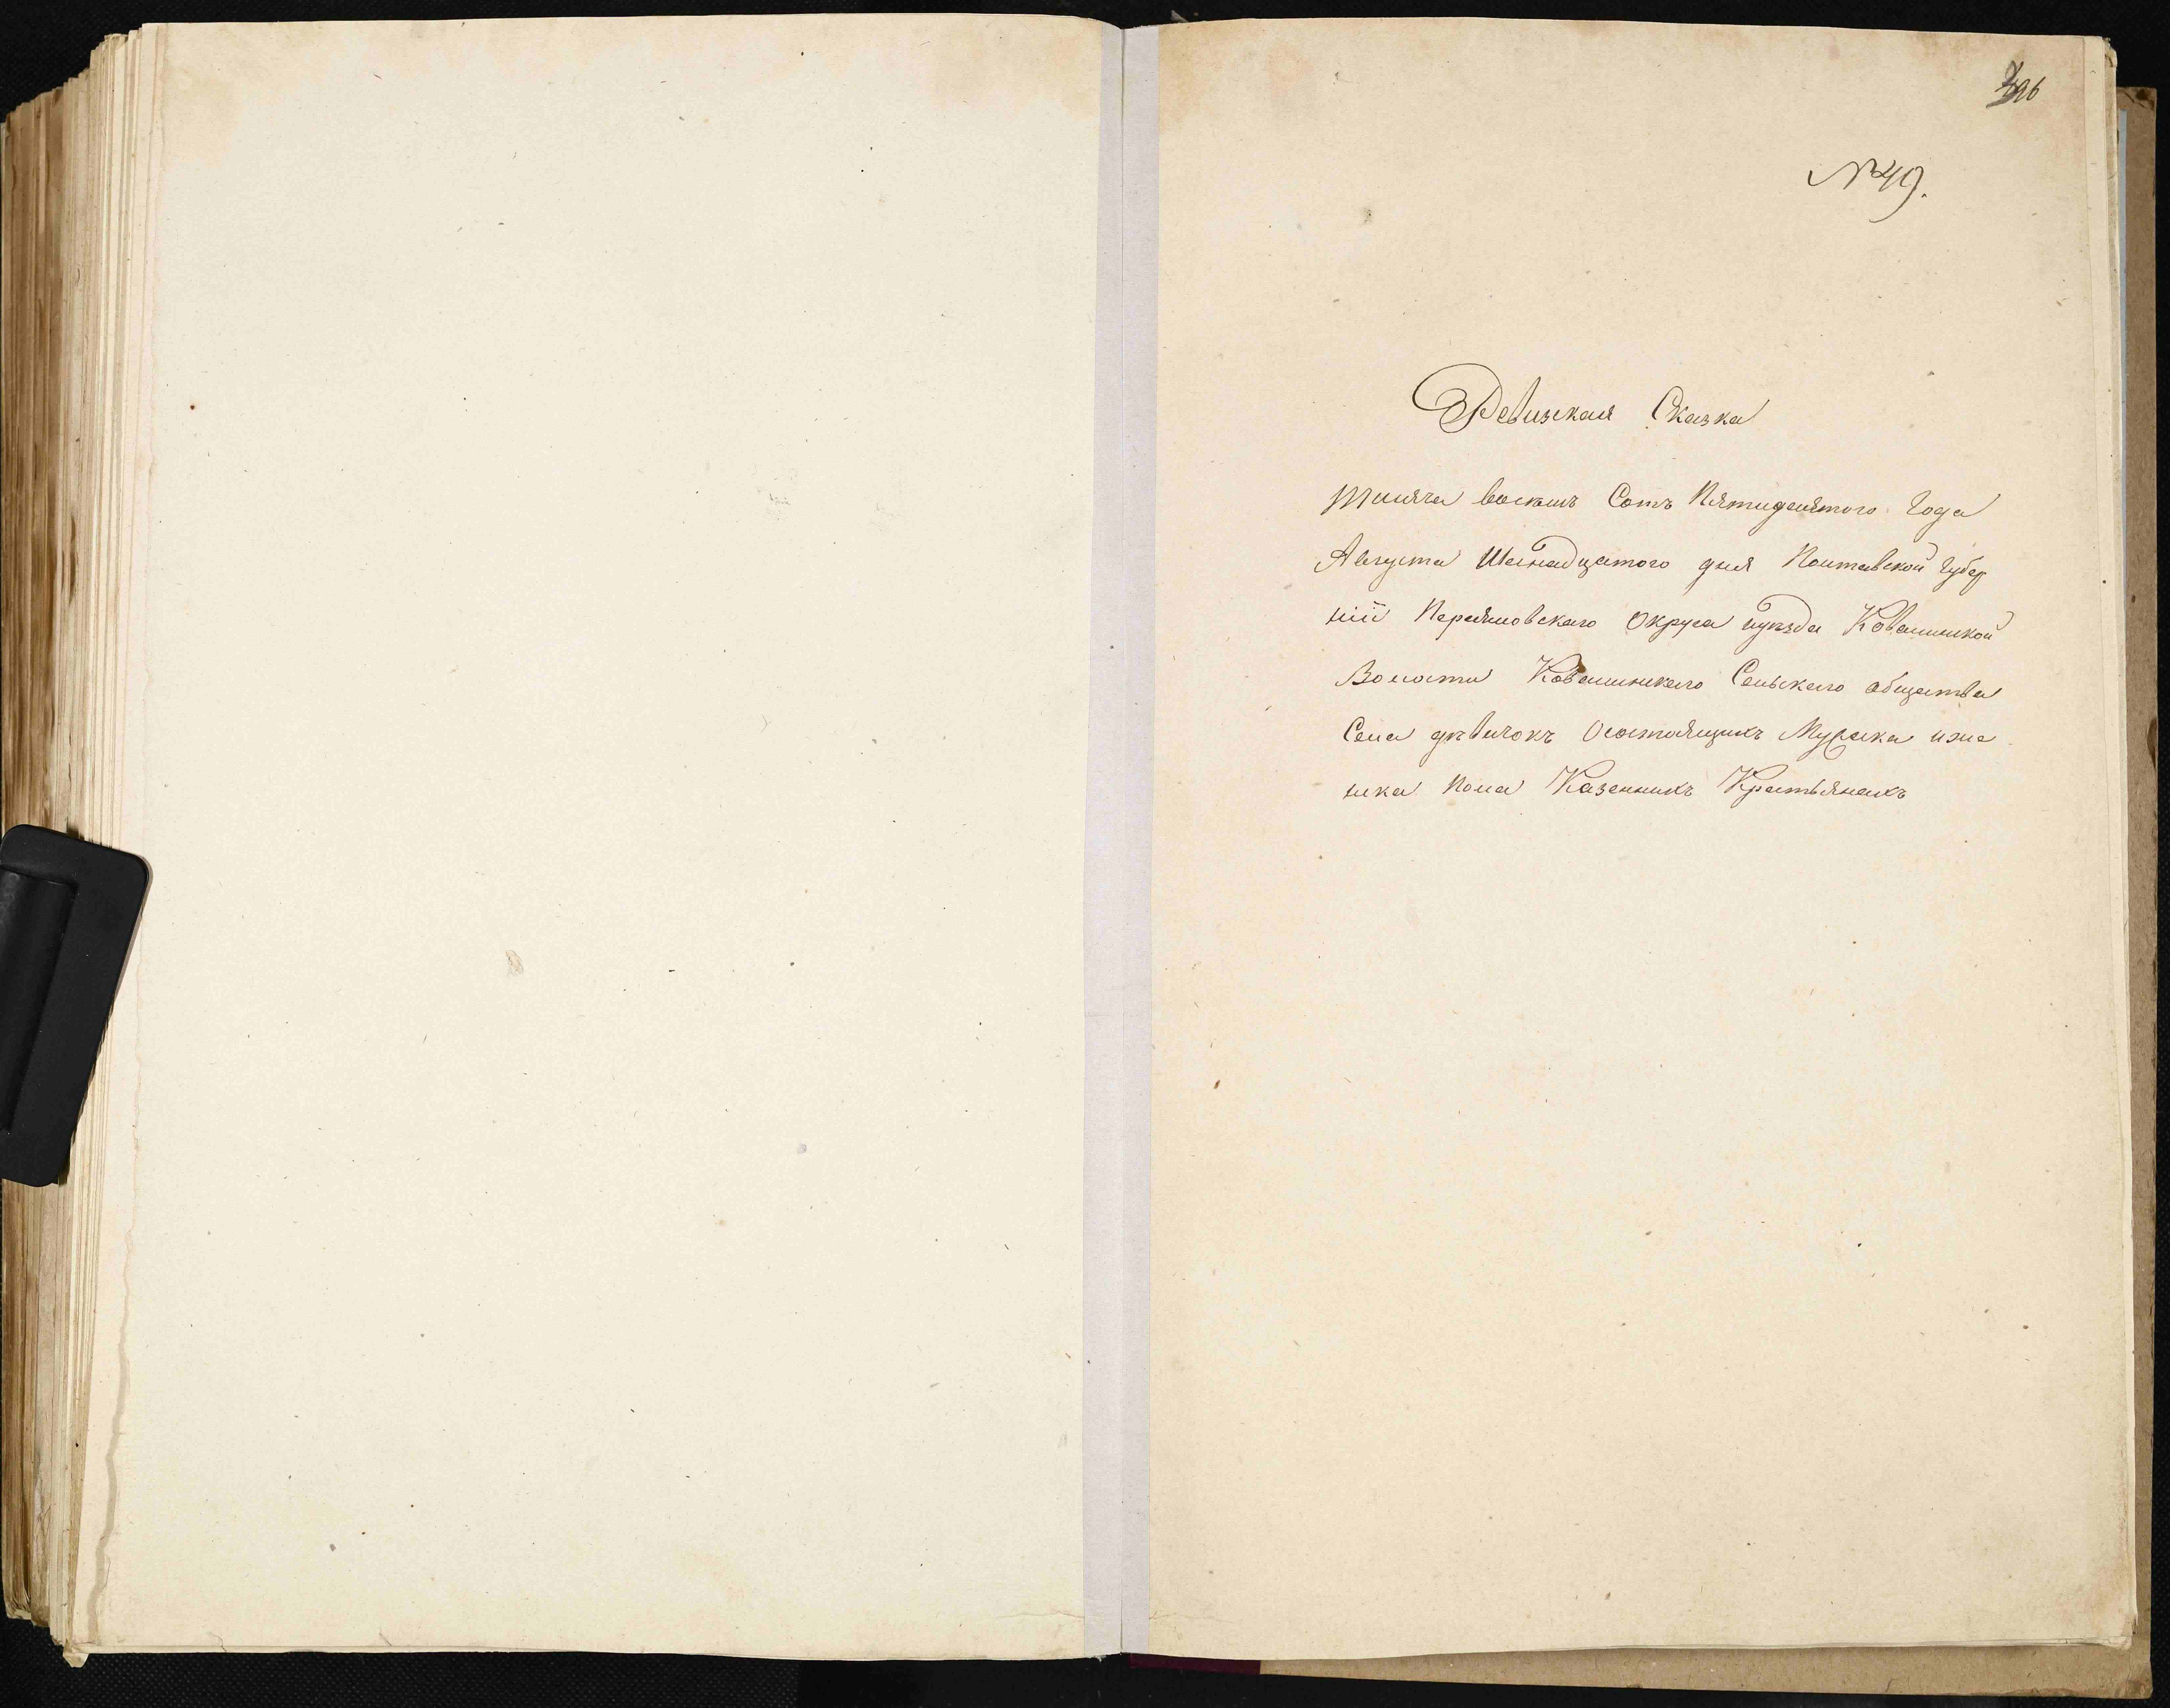 396
№ 49.
Ревизская Сказка
Тысяча восемь Сотъ Пятидесятого Года
Августа Шеснадцатого дня Полтавской Губер
нiи Переяславского Округа иуезда Ковалинской
Волости Ковалинского Сельского общества
Села девичокъ Осостоящихъ Мужеска иже
нска пола Казенныхъ Крестьянахъ